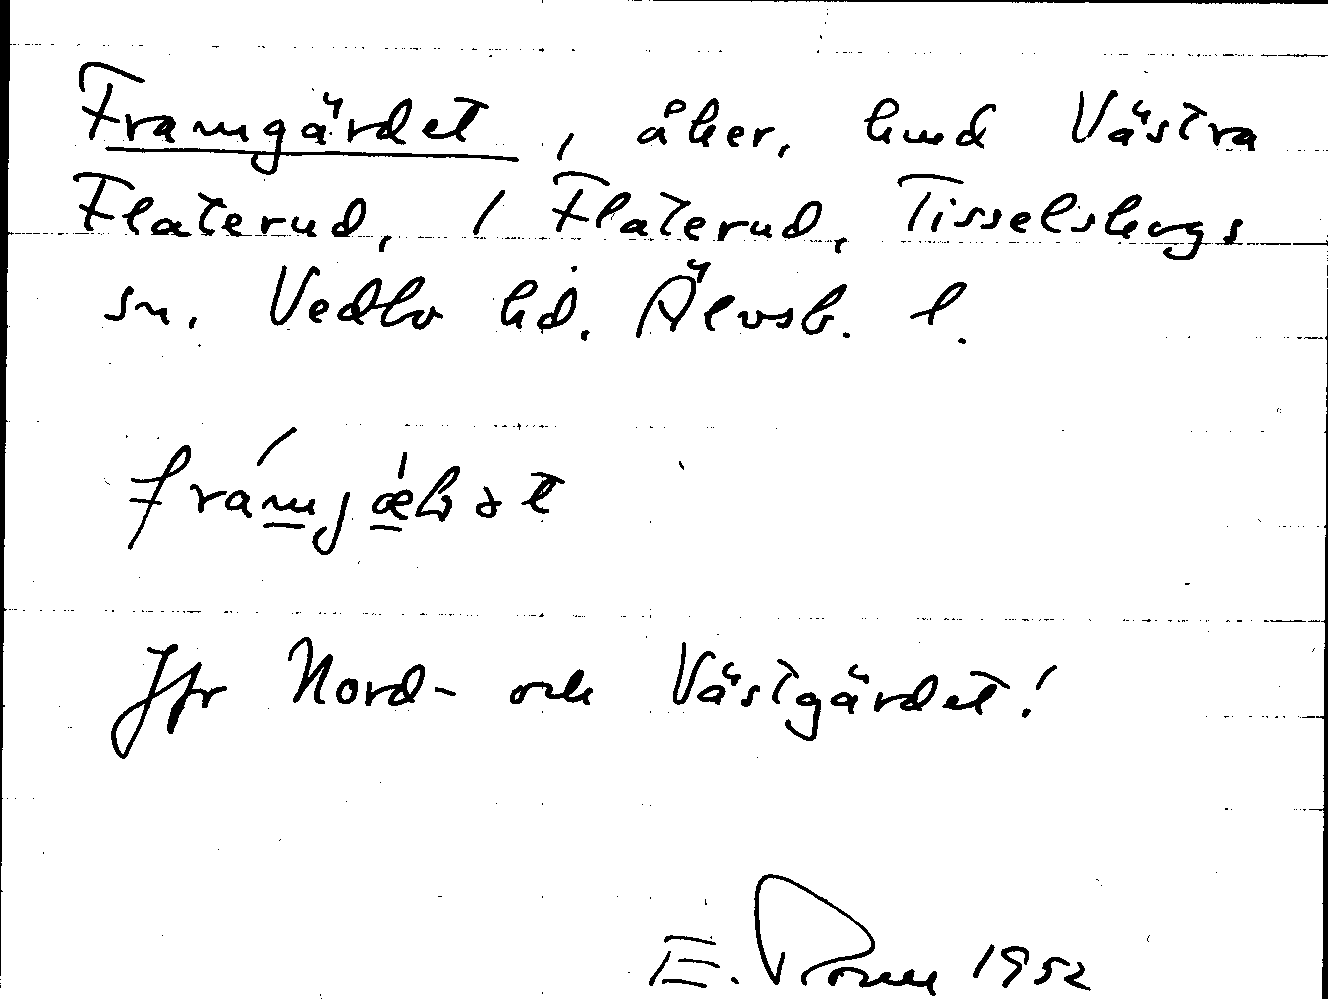 Framgärdet, åker, hmd Västra
Flaterud, 1 Flaterud, Tisselskogs
sn. Vedbo hd. Älvsb. l.
Jfr Nord- och Västgärdet!
E. 1952